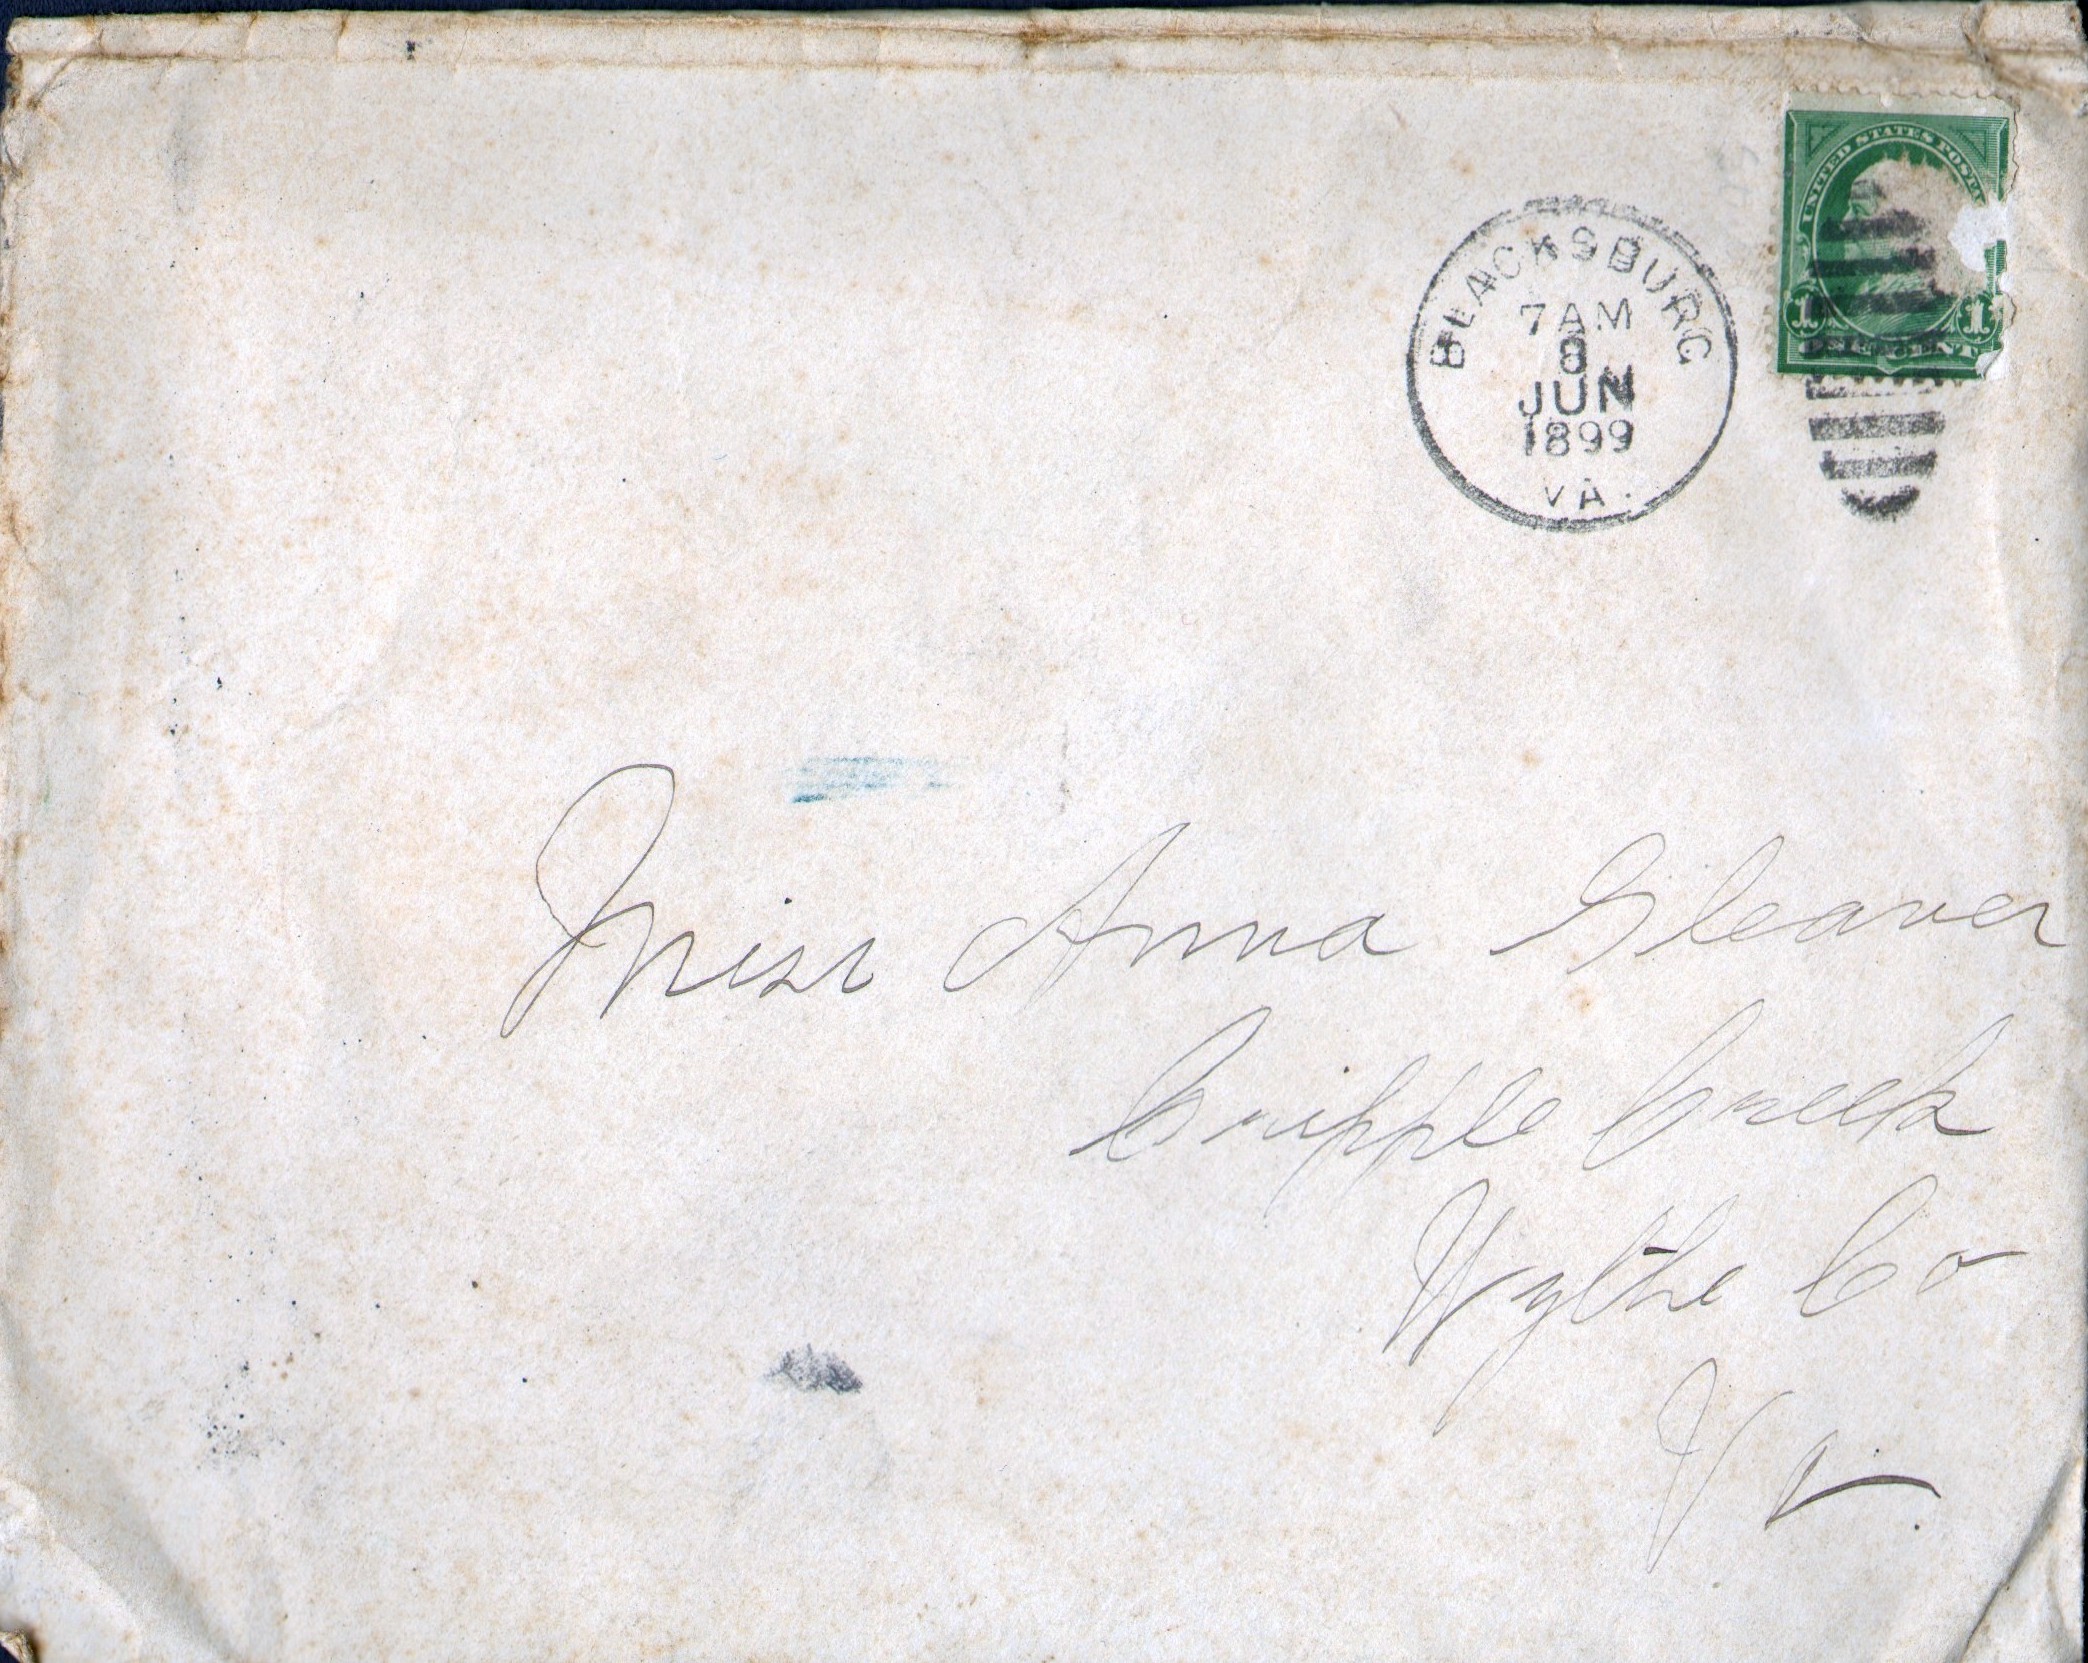 UNITED STATES POSTA
1 1
ONE CENT
BLACKSBURG
7 AM
8
JUN
1899
VA.
Miss Anna Gleaver
Cripple Creek
Wythe Co
Va.